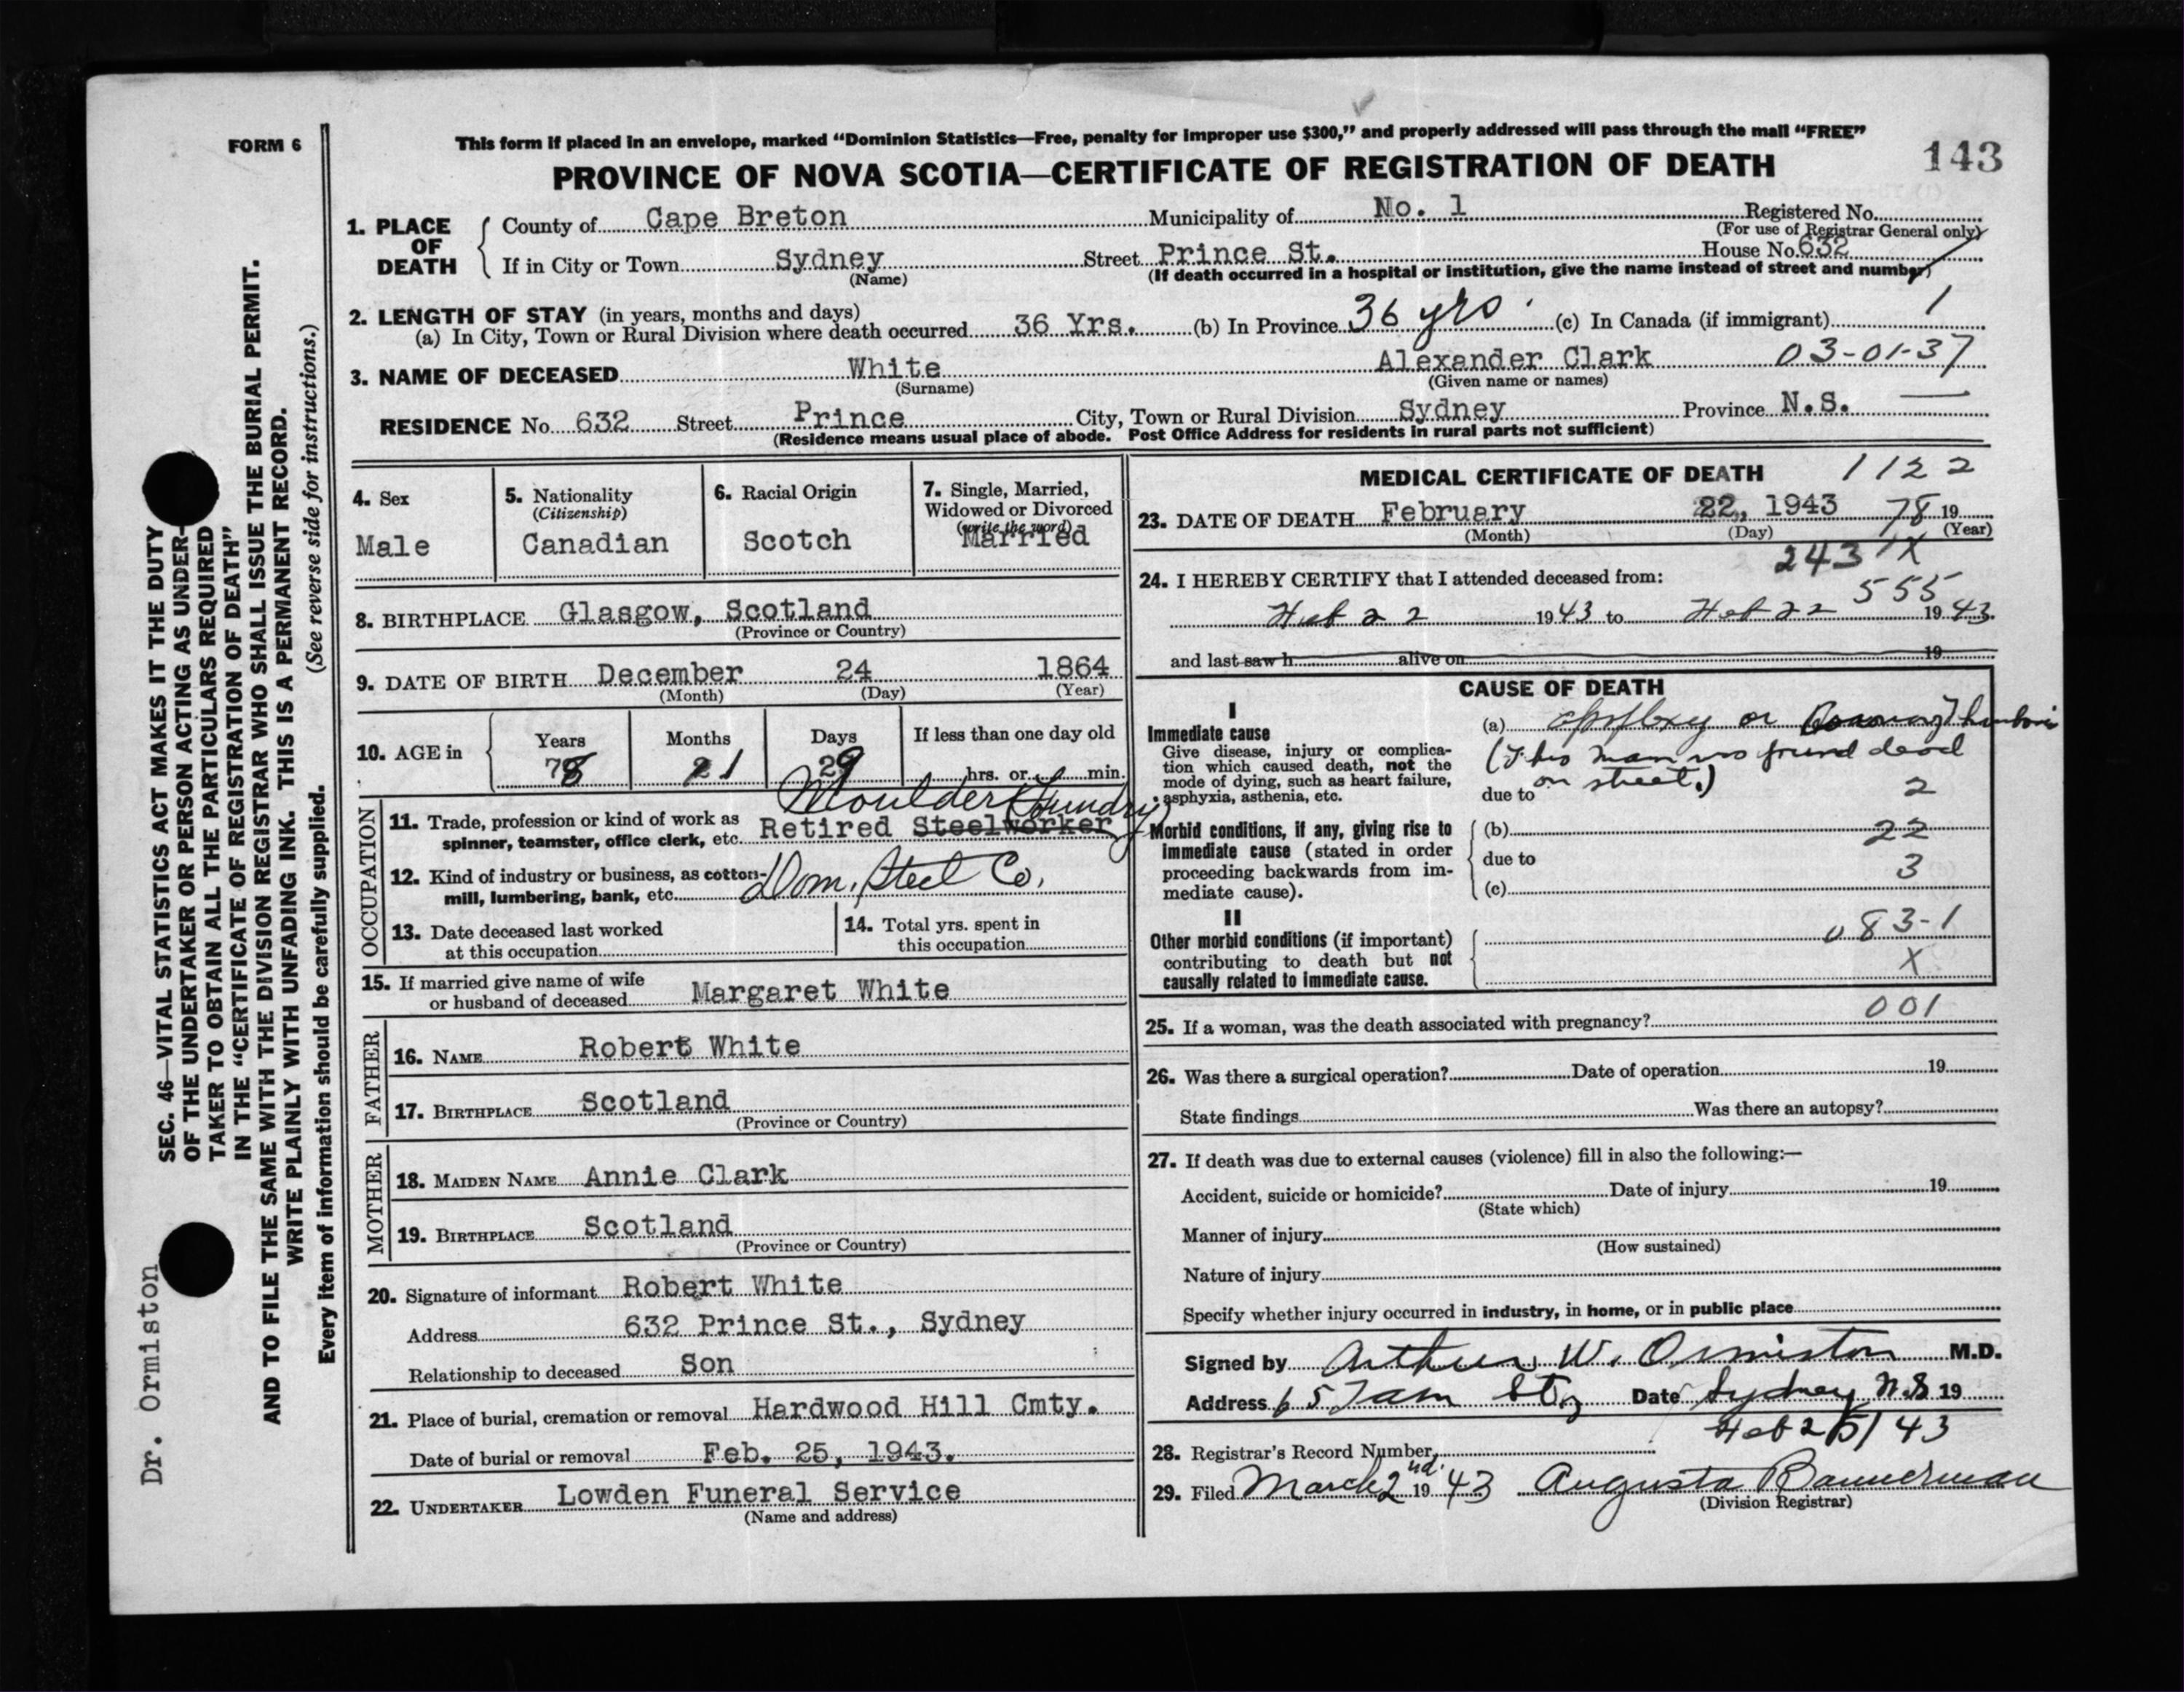 FORM 6
This form if placed in an envelope, marked “Dominion Statistics—Free, penalty for improper use $300,” and properly addressed will pass through the mail “FREE”
PROVINCE OF NOVA SCOTIA—CERTIFICATE OF REGISTRATION OF DEATH
143
1. PLACE OF DEATH
County of Cape Breton Municipality of No. 1 Registered No.
(For use of Registrar General only)
If in City or Town Sydney Street Prince St. House No. 632
(Name) (If death occurred in a hospital or institution, give the name instead of street and number)
2. LENGTH OF STAY (in years, months and days)
(a) In City, Town or Rural Division where death occurred 36 Yrs. (b) In Province 36 yrs. (c) In Canada (if immigrant) 1
3. NAME OF DECEASED White Alexander Clark 03-01-37
(Surname) (Given name or names)
RESIDENCE No. 632 Street Prince City, Town or Rural Division Sydney Province N.S.
(Residence means usual place of abode. Post Office Address for residents in rural parts not sufficient)
4. Sex
Male
5. Nationality
(Citizenship)
Canadian
6. Racial Origin
Scotch
7. Single, Married,
Widowed or Divorced
(write the word)
Married
8. BIRTHPLACE Glasgow, Scotland
(Province or Country)
9. DATE OF BIRTH December 24 1864
(Month) (Day) (Year)
10. AGE in
Years Months Days If less than one day old
78 1 29 hrs. or min.
OCCUPATION
Moulder (Foundry)
11. Trade, profession or kind of work as
spinner, teamster, office clerk, etc. Retired Steelworker
12. Kind of industry or business, as cotton-
mill, lumbering, bank, etc. Dom. Steel Co.
13. Date deceased last worked
at this occupation
14. Total yrs. spent in
this occupation
15. If married give name of wife
or husband of deceased Margaret White
FATHER
16. NAME Robert White
17. BIRTHPLACE Scotland
(Province or Country)
MOTHER
18. MAIDEN NAME Annie Clark
19. BIRTHPLACE Scotland
(Province or Country)
20. Signature of informant Robert White
Address 632 Prince St., Sydney
Relationship to deceased Son
21. Place of burial, cremation or removal Hardwood Hill Cmty.
Date of burial or removal Feb. 25, 1943.
22. UNDERTAKER Lowden Funeral Service
(Name and address)
MEDICAL CERTIFICATE OF DEATH 1122
23. DATE OF DEATH February 22, 1943 78 19
(Month) (Day) (Year)
243 X
24. I HEREBY CERTIFY that I attended deceased from:
555
Feb 22 1943 to Feb 22 1943
and last saw h alive on 19
CAUSE OF DEATH
I
Immediate cause
Give disease, injury or complica-
tion which caused death, not the
mode of dying, such as heart failure,
asphyxia, asthenia, etc.
(a) Apoplexy or Coronary
(This man was found dead
on street.)
due to 2
Morbid conditions, if any, giving rise to
immediate cause (stated in order
proceeding backwards from im-
mediate cause).
(b) 22
due to 3
(c)
II
Other morbid conditions (if important)
contributing to death but not
causally related to immediate cause.
083-1
X
001
25. If a woman, was the death associated with pregnancy?
26. Was there a surgical operation? Date of operation 19
State findings Was there an autopsy?
27. If death was due to external causes (violence) fill in also the following:—
Accident, suicide or homicide? Date of injury 19
(State which)
Manner of injury
(How sustained)
Nature of injury
Specify whether injury occurred in industry, in home, or in public place
Signed by Arthur W. Ormiston M.D.
Address Date Sydney N.S 19
Feb 25/43
28. Registrar's Record Number
29. Filed March 2nd. 1943 Augusta Bannerman
(Division Registrar)
SEC. 46—VITAL STATISTICS ACT MAKES IT THE DUTY
OF THE UNDERTAKER OR PERSON ACTING AS UNDER-
TAKER TO OBTAIN ALL THE PARTICULARS REQUIRED
IN THE “CERTIFICATE OF REGISTRATION OF DEATH”
AND TO FILE THE SAME WITH THE DIVISION REGISTRAR WHO SHALL ISSUE THE BURIAL PERMIT.
WRITE PLAINLY WITH UNFADING INK. THIS IS A PERMANENT RECORD.
(See reverse side for instructions.)
Every item of information should be carefully supplied.
Dr. Ormiston